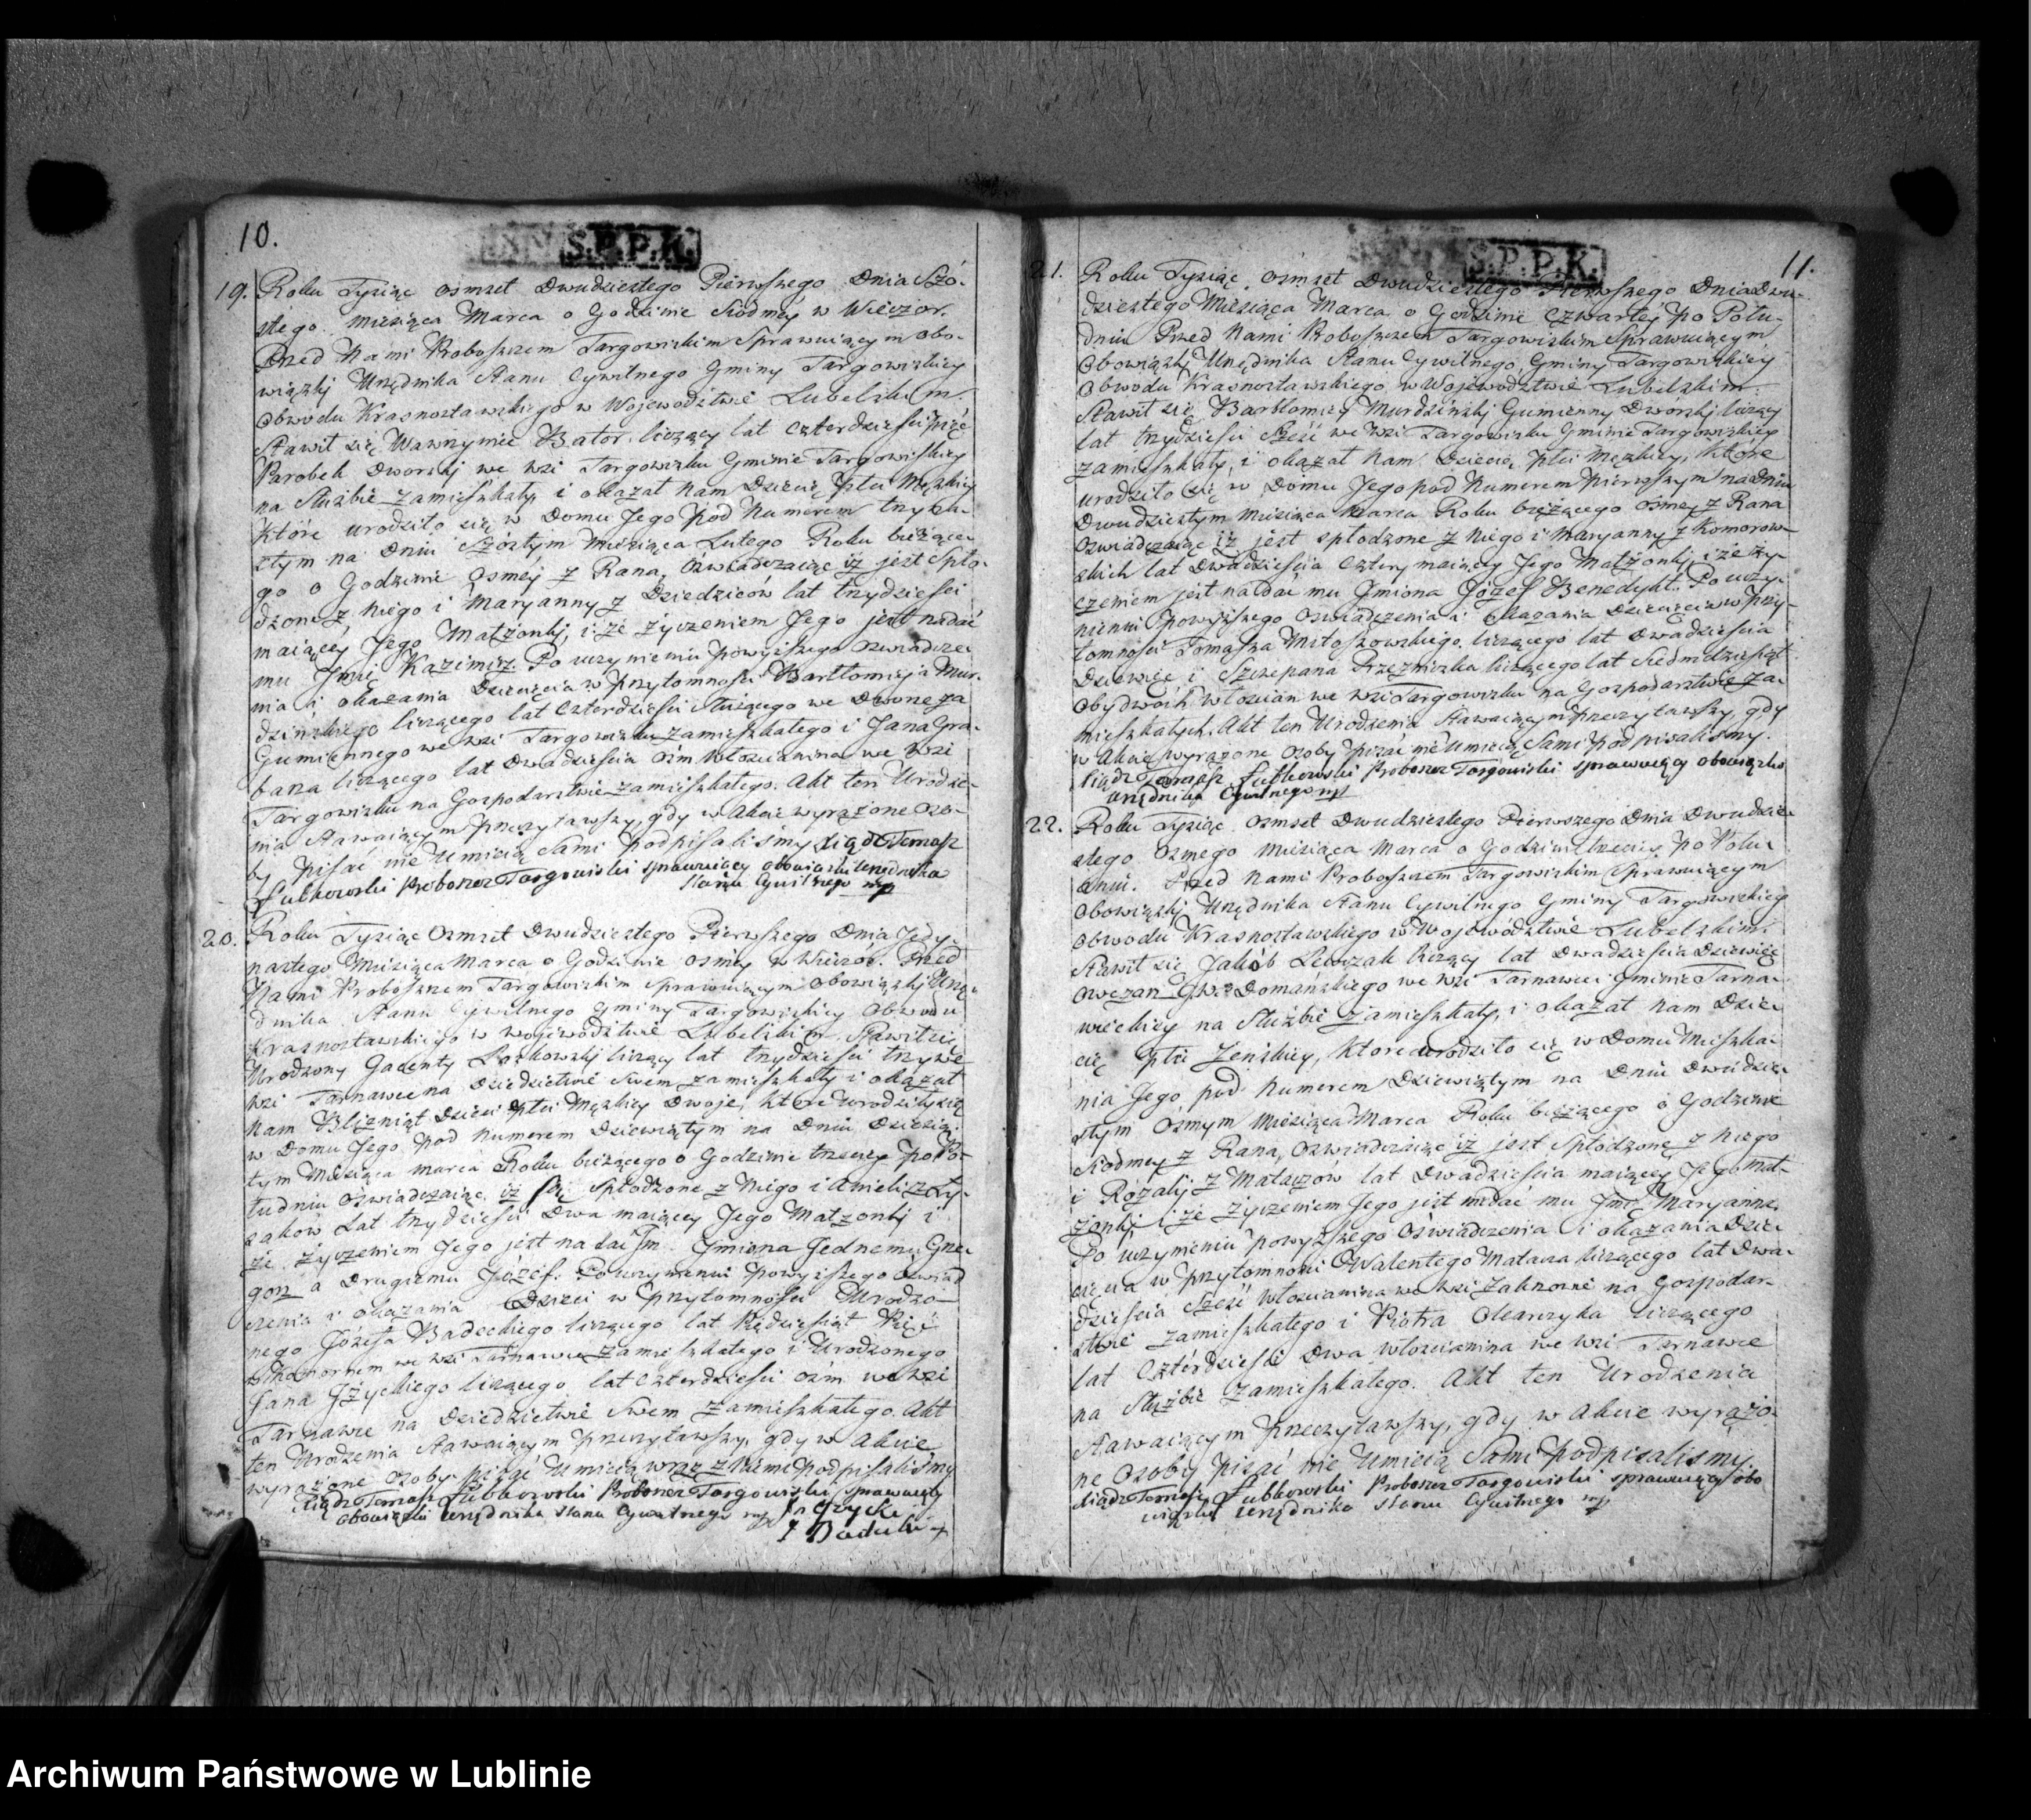 10.
S.P.P.K.
19. Roku Tysiąc osmset Dwudziestego Pierwszego Dnia Szó-
stego Miesiąca Marca o Godzinie Siodmey w Wieczor.
Przed Nami Proboszczem Targowiskim Sprawuiącym Obo-
wiązki Urzędnika Stanu Cywilnego Gminy Targowiskiey
Obwodu Krasnostawskiego w Wojewodztwie Lubelskim.
Stawił się Wawrzyniec Bator liczący lat czterdzieści
Parobek Dworski we wsi Targowisku Gminie Targowiskiey
na Służbie zamieszkały i okazał Nam Dziecię płci Męzkiey
które urodziło się w Domu Jego pod Numerem trzyna-
stym na Dniu Szóstym Miesiąca Lutego Roku bieżące-
go o Godzinie osmey z Rana, oswiadczaiąc iż jest Spło-
dzone z niego i Maryanny z Dziedziców lat trzydzieści
maiącey Jego Małżonki, i że życzeniem Jego jest nadać
mu Jmię Kazimierz. Po uczynieniu powyższego oswiadcze-
nia i okazania Dziecięcia w przytomności Bartłomieja Mur-
dzińskiego liczącego lat czterdzieści służącego we Dworze za
Gumiennego we wsi Targowisku zamieszkałego i Jana Gra-
bana liczącego lat Dwadzieścia ośm Włościanina we wsi
Targowisku na Gospodarstwie zamieszkałego. Akt ten Urodze-
nia Stawaiącym przeczytawszy, gdy w Akcie wyrażone Oso-
by pisać nie Umieią Sami podpisaliśmy Xiądz Tomasz
Łubkowski Proboszcz Targowiski sprawuiący obowiązki Urzędnika
Stanu Cywilnego mp
20. Roku Tysiąc Osmset Dwudziestego Pierwszego Dnia Jedy-
nastego Miesiąca Marca o Godzinie osmey w Wieczór. Przed
Nami Proboszczem Targowiskim Sprawuiącym Obowiązki Urzę-
dnika Stanu Cywilnego Gminy Targowiskiey Obwodu
Krasnostawskiego w wojewodztwie Lubelskim. Stawił się
Urodzony liczący lat trzydzieści trzy we
wsi Tarnawce na Dziedzictwie Swem zamieszkały i okazał
Nam Bliźniąt Dzieci płci Męzkiey Dwoje, które urodziły się
w Domu Jego pod Numerem Dziewiątym na Dniu Dziesią-
tym Miesiąca marca Roku bieżącego o Godzinie trzeciey po Po-
łudniu oswiadczaiąc, iż są Spłodzone z Niego i Amelii z Ły-
saków Lat trzydzieści Dwa maiącey Jego Małżonki i
że życzeniem Jego jest nadać Im Jmiona Jednemu Grze-
gorz a Drugiemu Józef. Po uczynieniu powyższego oswiad-
czenia i okazania Dzieci w przytomności Urodzo-
nego Józefa Badeckiego liczącego lat Pięćdziesiąt Pięć
we wsi Tarnawce zamieszkałego i Urodzonego
Jana Iżyckiego liczącego lat czterdzieści ośm we wsi
Tarnawce na Dziedzictwie Swem zamieszkałego. Akt
ten Urodzenia stawaiącym przeczytawszy, gdy w Akcie
wyrażone osoby pisać Umieią wraz z Niemi podpisaliśmy
Xiądz Tomasz Łubkowski Proboszcz Targowiski sprawuiący
obowiązki Urzędnika Stanu Cywilnego mp
11.
S.P.P.K.
21. Roku Tysiąc ośmset Dwudziestego Pierwszego Dnia Dwu-
dziestego Miesiąca Marca o Godzinie czwartey po Połu-
dniu Przed Nami Proboszczem Targowiskim Sprawuiącym
Obowiązki Urzędnika Stanu Cywilnego, Gminy Targowiskiey
Obwodu Krasnostawskiego w Wojewodztwie Lubelskim.
Stawił się Bartłomiey Murdziński Gumienny Dworski liczący
lat trzydzieści Sześć we wsi Targowisku Gminie Targowiskiey
zamieszkały, i okazał Nam Dziecię płci Męzkiey, które
urodziło się w Domu Jego pod Numerem Pierwszym na Dniu
Dwudziestym Miesiąca Marca Roku bieżącego osmey z Rana
oswiadczaiąc iż jest spłodzone z niego i Maryanny z Komorow-
skich lat Dwadzieścia cztery maiącey Jego Małżonki, i że ży-
czeniem jest nadać mu Jmiona Józef Benedykt. Po uczy-
nieniu powyższego oswiadczenia i okazania Dziecięcia w Przy-
tomności Tomasza Miłoszowskiego liczącego lat Dwadzieścia
Dziewięć i Szczepana liczącego lat Siedmdziesiąt
obydwóch włościan we wsi Targowisku na Gospodarstwie za-
mieszkałych. Akt ten Urodzenia Stawaiącym przeczytawszy, gdy
w Akcie wyrażone osoby pisać nie Umieią Sami podpisaliśmy.
Xiądz Tomasz Łubkowski Proboszcz Targowiski sprawuiący obowiązki
Urzędnika Cywilnego mp
22. Roku Tysiąc osmset Dwudziestego Pierwszego Dnia Dwudzie-
stego Osmego Miesiąca Marca o Godzinie trzeciey po Połu-
dniu. Przed Nami Proboszczem Targowiskim Sprawuiącym
Obowiązki Urzędnika Stanu Cywilnego Gminy Targowiskiey
Obwodu Krasnostawskiego w Województwie Lubelskim.
Stawił się Jakób Lewczak liczący lat Dwadzieścia Dziewięć
Owczarz Domańskiego we wsi Tarnawce Gminie Tarna-
wieckiey na Służbie zamieszkały, i okazał Nam Dzie-
cię płci Żeńskiey, które urodziło się w Domu Mieszka-
nia Jego pod Numerem Dziewiątym na Dniu Dwudzie-
stym Ósmym Miesiąca Marca Roku bieżącego o Godzinie
Siodmey z Rana, oświadczaiąc iż jest Spłodzone z Niego
i Rozalij z Mataczów lat Dwadzieścia maiącey Jego Mał-
żonki i że życzeniem Jego jest nadać mu Jmię Maryanna.
Po uczynieniu powyższego Oświadczenia i okazania Dzie-
cięcia w przytomności Walentego Matacza liczącego lat Dwa-
dzieścia Sześć Włościanina we wsi Zakrocie na Gospodar-
stwie zamieszkałego i Piotra Olearczyka liczącego
lat Czterdzieści Dwa Włościanina we wsi Tarnawce
na Służbie zamieszkałego. Akt ten Urodzenia
Stawaiącym przeczytawszy, gdy w Akcie wyrażo-
ne osoby pisać nie Umieią Sami podpisaliśmy.
Xiądz Tomasz Łubkowski Proboszcz Targowiski sprawuiący obo
wiązki Urzędnika Stanu Cywilnego mp
Archiwum Państwowe w Lublinie